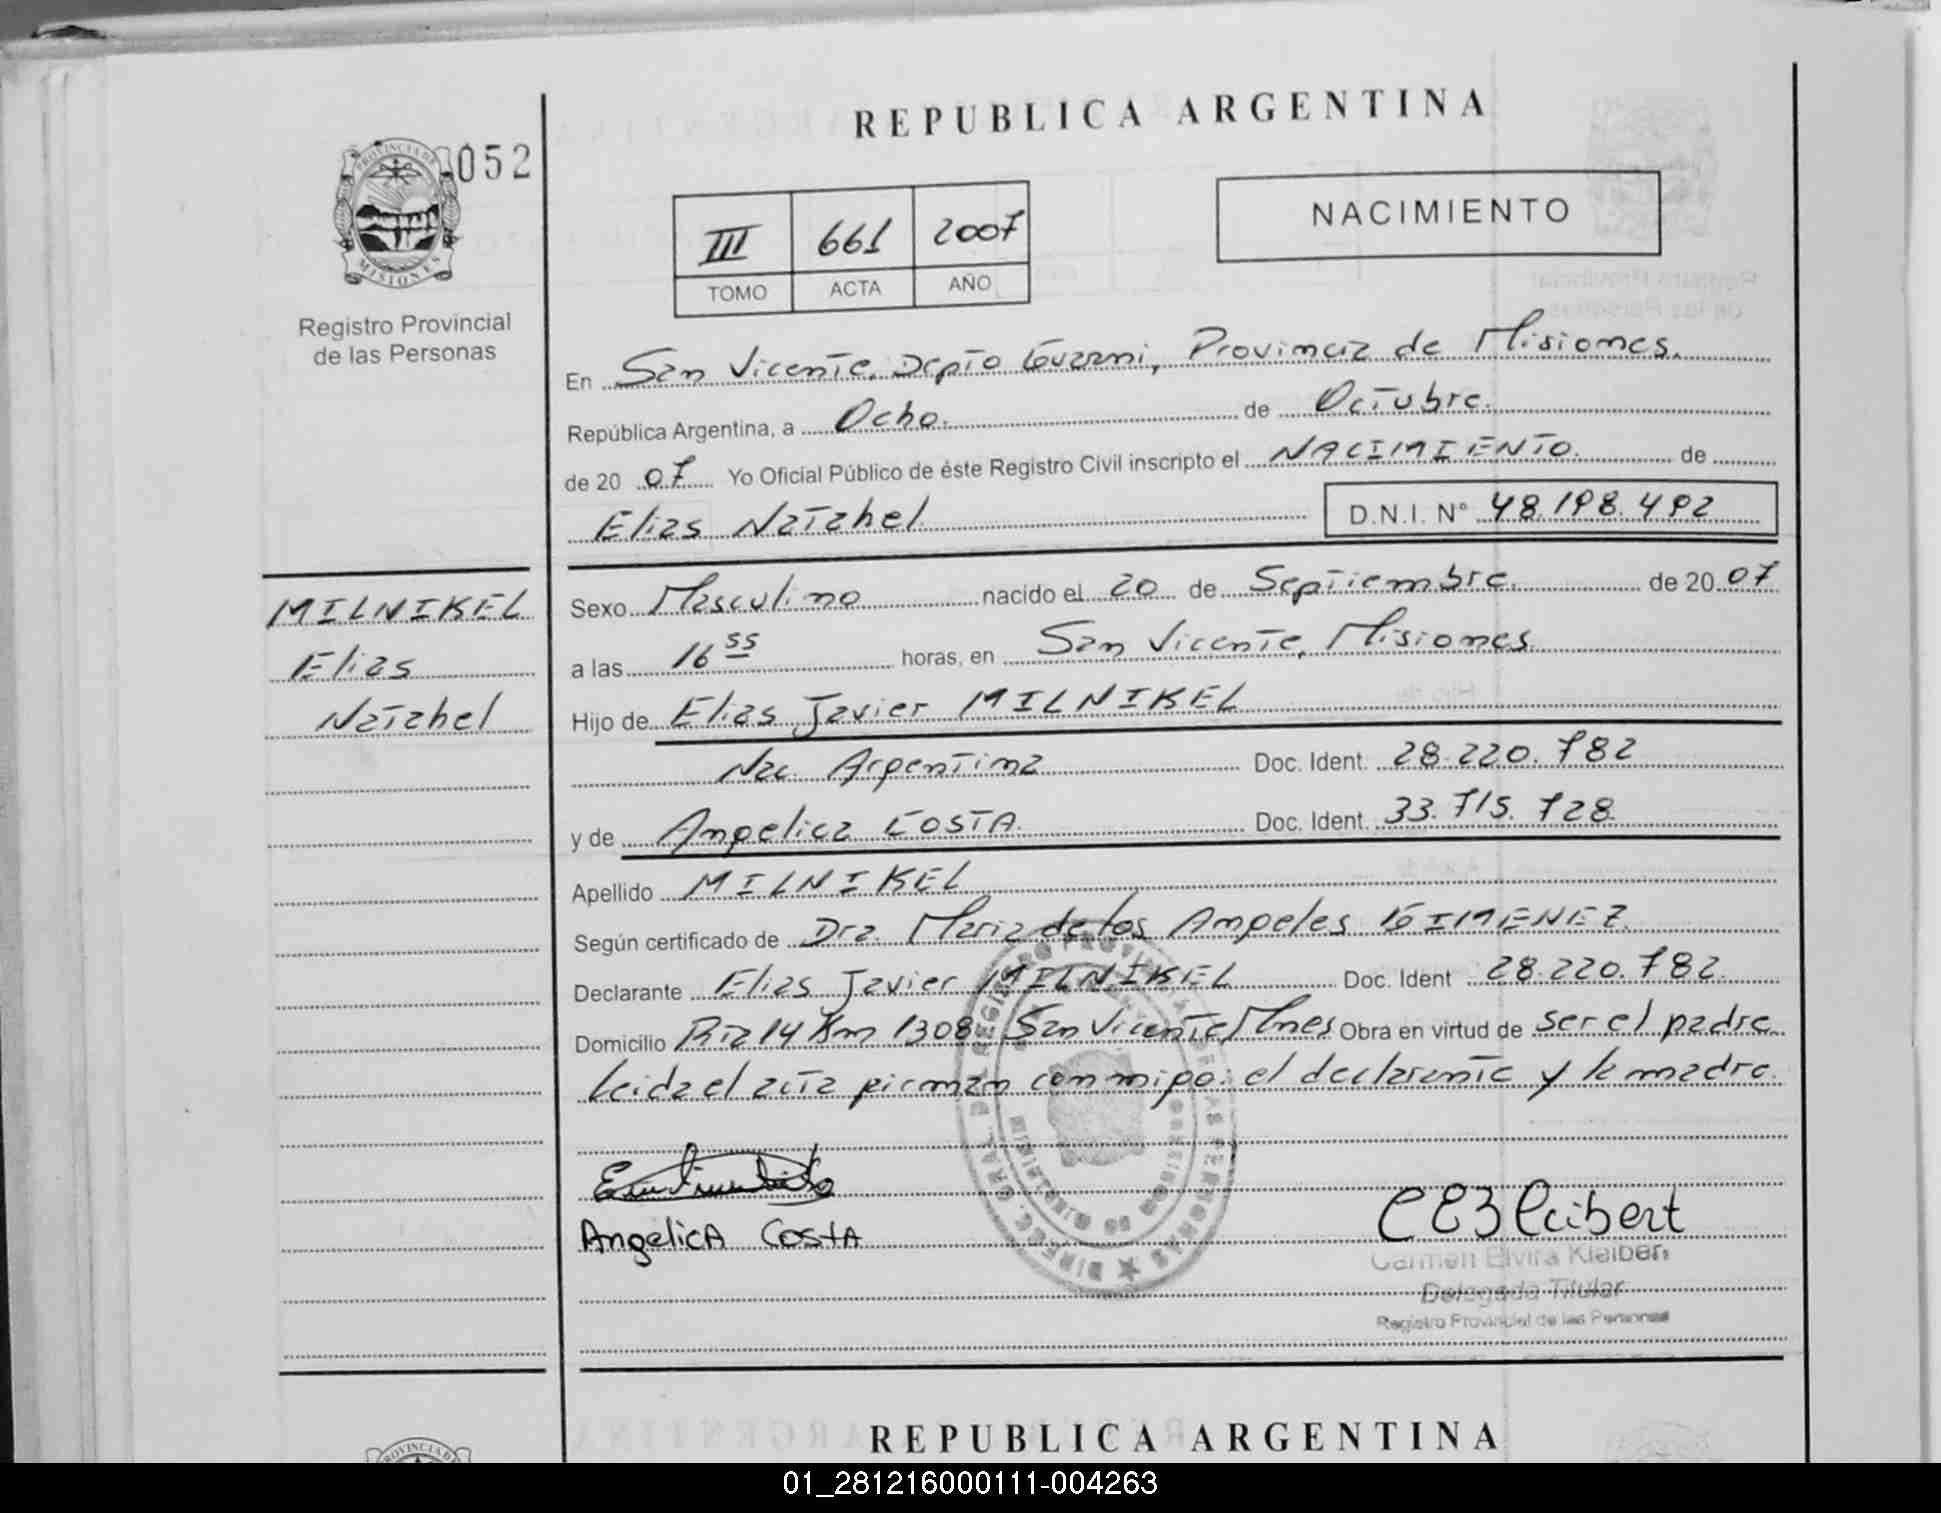 REPUBLICA ARGENTINA
052
PROVINCIA DE
MISIONES
Registro Provincial
de las Personas
III 661 2007
TOMO ACTA AÑO
NACIMIENTO
En San Vicente, Depto Guarani, Provincia de Misiones.
República Argentina, a Ocho. de Octubre.
de 20 07 Yo Oficial Público de éste Registro Civil inscripto el NACIMIENTO. de
Elias Natahel D.N.I. N° 48.198.492
MILNIKEL
Elias
Natahel
Sexo Masculino nacido el 20 de Septiembre. de 20 07
a las 16 55 horas, en San Vicente, Misiones.
Hijo de Elias Javier MILNIKEL
Nac. Argentina Doc. Ident. 28.220.782
y de Angelica COSTA. Doc. Ident. 33.715.728.
Apellido MILNIKEL
Según certificado de Dra. Maria de los Angeles GIMENEZ.
Declarante Elias Javier MILNIKEL Doc. Ident 28.220.782.
Domicilio Rta 14 Km 1308 San Vicente, Mnes Obra en virtud de ser el padre
leida el acta firman conmigo: el declarante y la madre.
AngelicA CostA
Carmen Elvira Kleibert
Delegada Titular
Registro Provincial de las Personas
REPUBLICA ARGENTINA
PROVINCIA DE
01_281216000111-004263